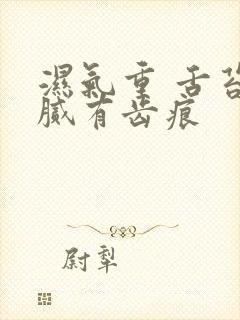 濕氣重 舌苔
膩有齿痕
尉犁